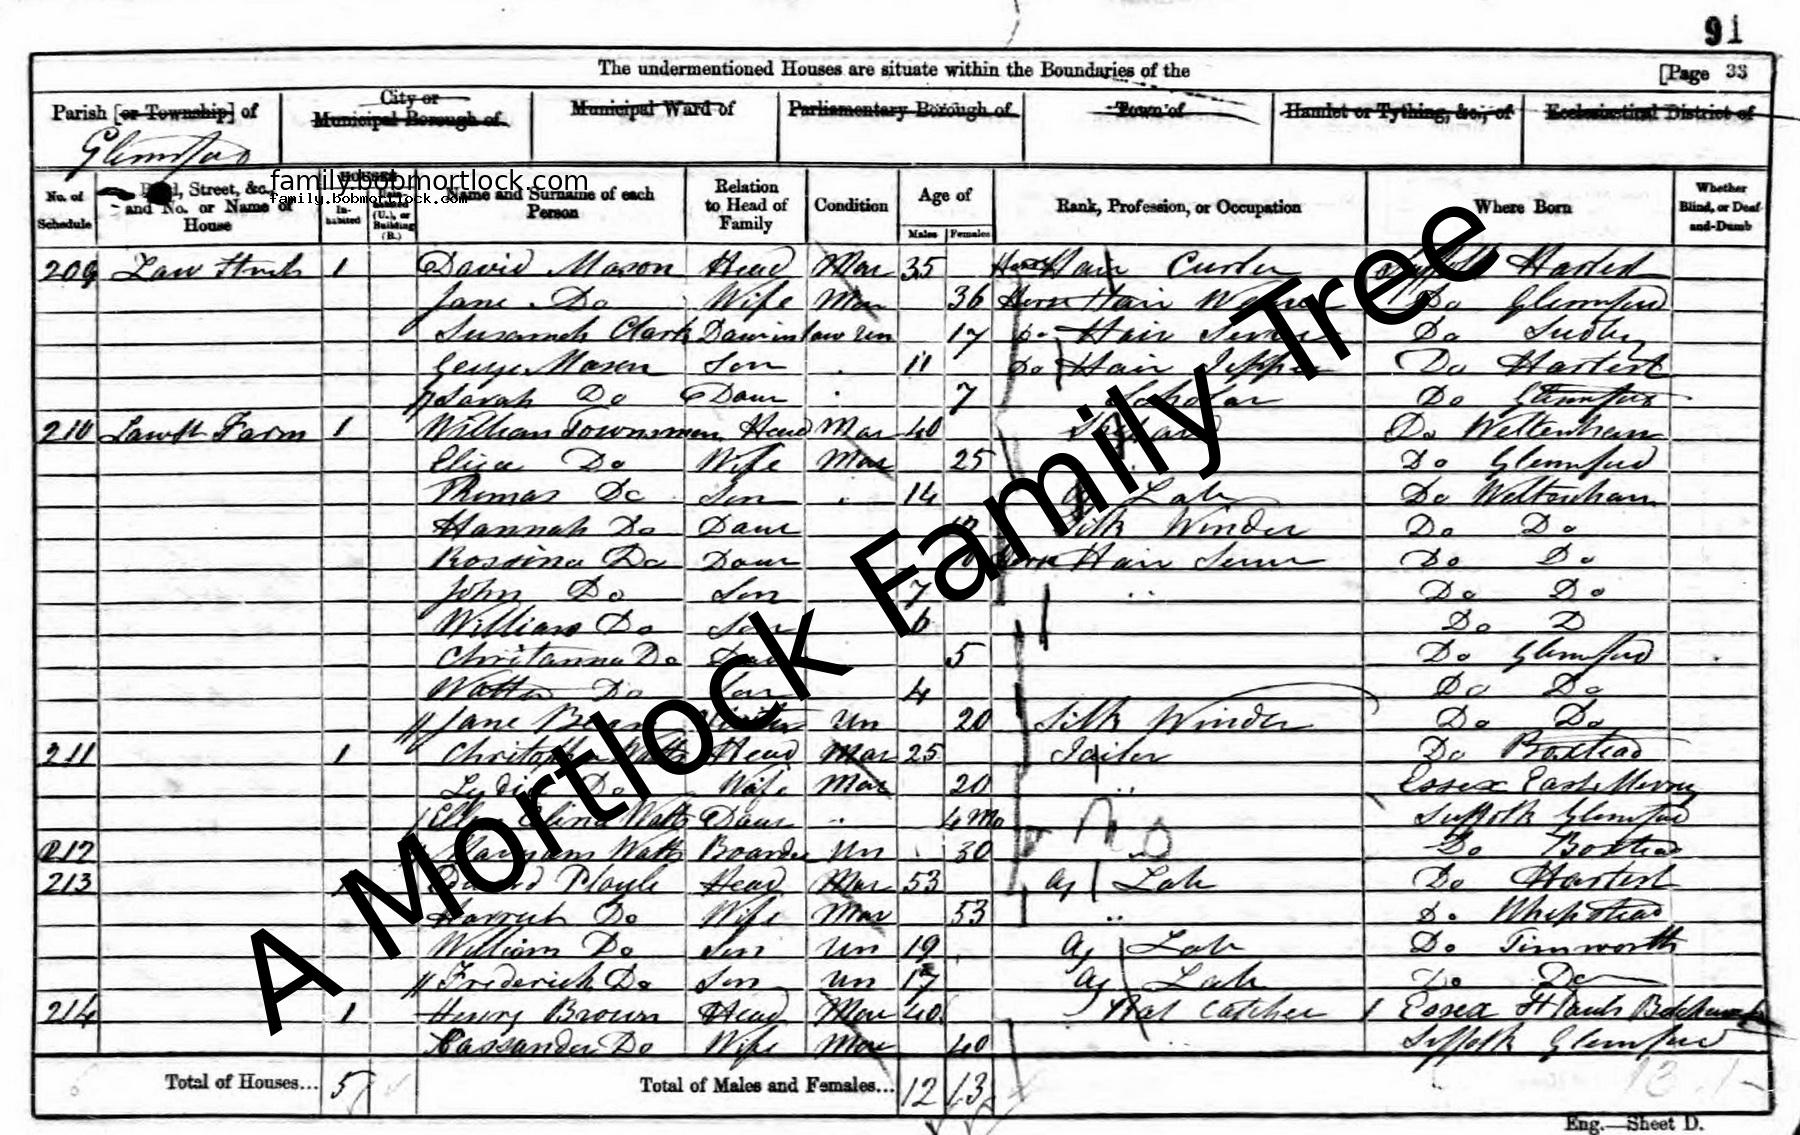 91
The undermentioned Houses are situate within the Boundaries of the [Page 33
Parish [or Township] of City or Municipal Borough of Municipal Ward of Parliamentary Borough of Town of Hamlet or Tything, &c., of Ecclesiastical District of
Glemsford
family.bobmortlock.com
family.bobmortlock.com
No. of Schedule Road, Street, &c., and No. or Name of House HOUSES Inhabited Uninhabited (U.), or Building (B.) Name and Surname of each Person Relation to Head of Family Condition Age of Males Females Rank, Profession, or Occupation Where Born Whether Blind, or Deaf-and-Dumb
209 Law Street 1 David Mason Head Mar 35 Hair Curler Suffolk Harted
Jane Do Wife Mar 36 Horse Hair Do Glemsford
Susannah Clark Daur in law Un 17 Do Hair Do Sudby
George Mason Son 11 Do Hair Do Hartest
Sarah Do Daur 7 Scholar Do Glemsford
210 Lawst Farm 1 William Townsman Head Mar 40 Do Weltenham
Eliza Do Wife Mar 25 Do Glemsford
Thomas Do Son 14 Ag Lab Do Weltenham
Hannah Do Daur Silk Winder Do Do
Rossina Do Daur Horse Hair Do Do
John Do Son 7 Do Do
William Do Son 6 Do D
Christanna Do Daur 5 Do Glemsford
Do Son 4 Do Do
Jane Un 20 Silk Winder Do Do
211 1 Watts Head Mar 25 Tailer Do Boxtead
Lydia Do Wife Mar 20 Essex East
Watts Daur 4 Mo Suffolk Glemsford
212 Watts Boarder Un 30 Do Boxtead
213 Playle Head Mar 53 Ag Lab Do Hartest
Do Wife Mar 53 Do Whepstead
William Do Son Un 19 Ag Lab Do Timworth
Frederick Do Son Un 17 Ag Lab Do Do
214 1 Henry Brown Head Mar 40 Rat Catcher Essex
Cassander Do Wife Mar 40 Suffolk Glemsford
Total of Houses... 5 Total of Males and Females... 12 13
Eng.—Sheet D.
A Mortlock Family Tree